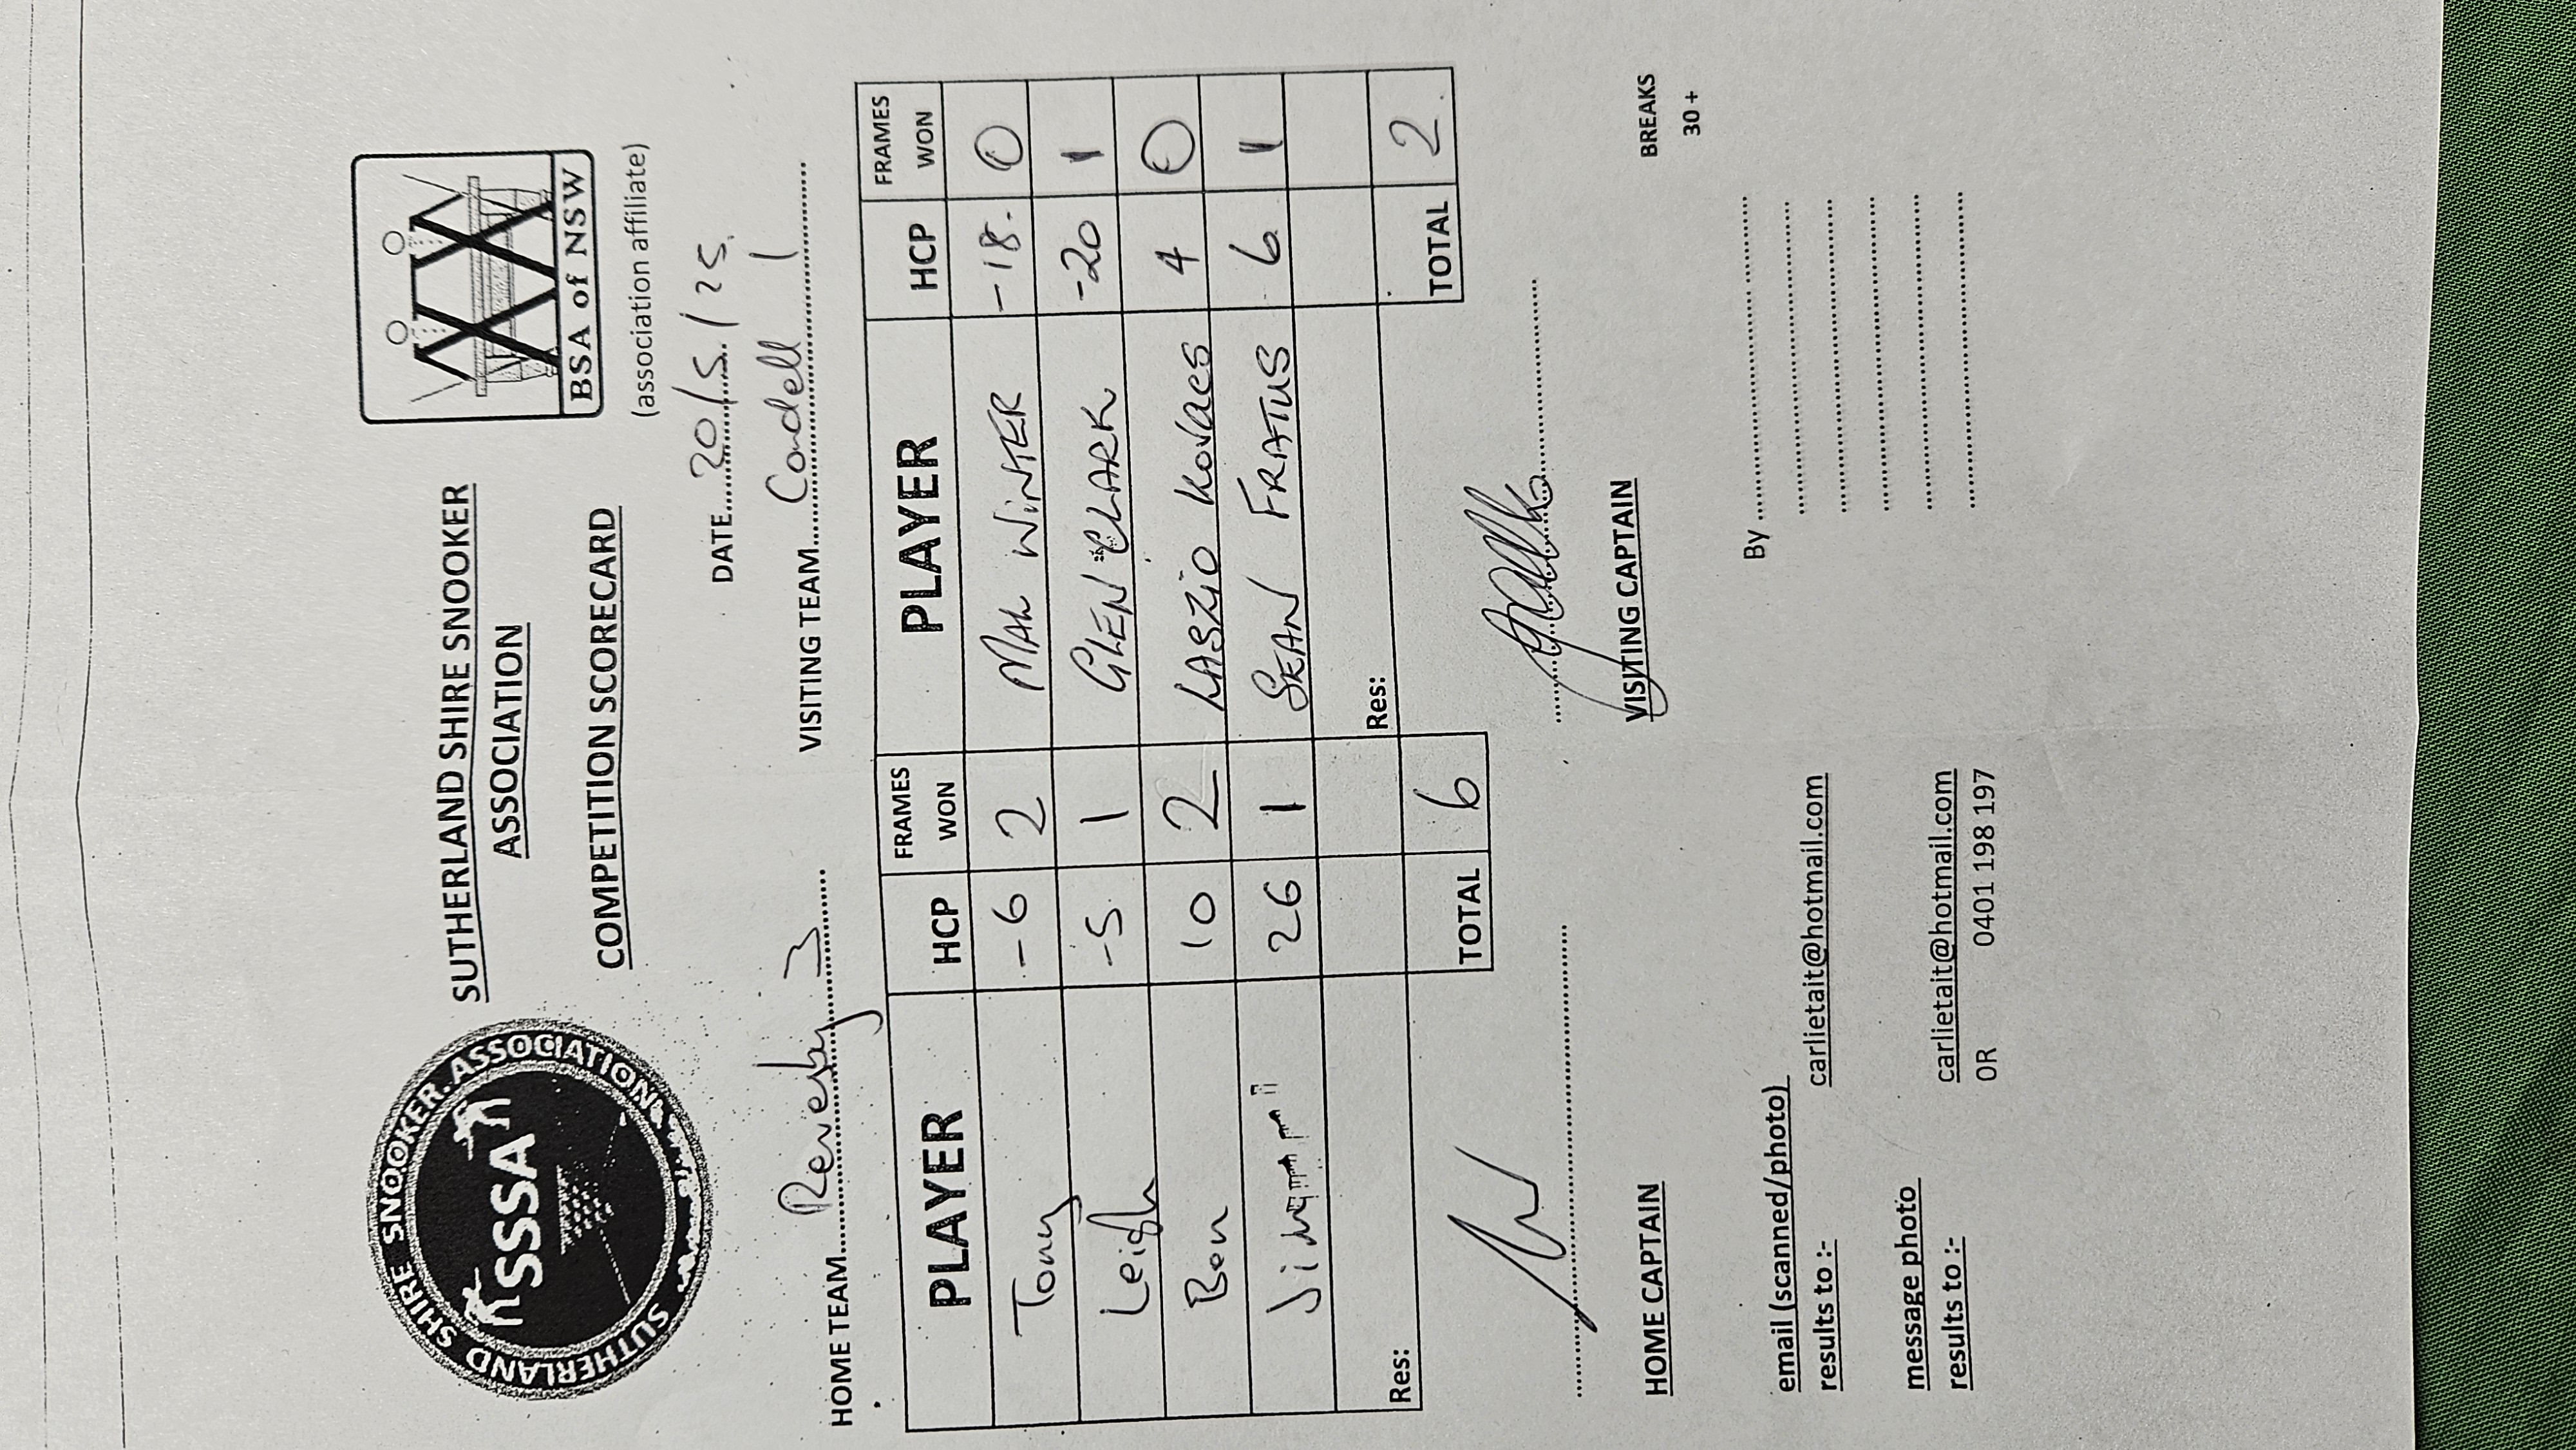 SUTHERLAND SHIRE SNOOKER ASSOCIATION
SSSA
SUTHERLAND SHIRE SNOOKER
ASSOCIATION
COMPETITION SCORECARD
BSA of NSW
(association affiliate)
DATE 20/5/25
HOME TEAM Revesby 3 VISITING TEAM Condell 1
PLAYER HCP FRAMES WON PLAYER HCP FRAMES WON
Tony -6 2 MAL WINTER -18 0
Leigh -5 1 GLEN CLARK -20 1
Ben 10 2 LASZIO KOVACS 4 0
26 1 SEAN FRATUS 6 1
Res: Res:
TOTAL 6 TOTAL 2
HOME CAPTAIN VISITING CAPTAIN BREAKS
30+
email (scanned/photo)
results to :- carlietait@hotmail.com
By
message photo
results to :- carlietait@hotmail.com
OR 0401 198 197